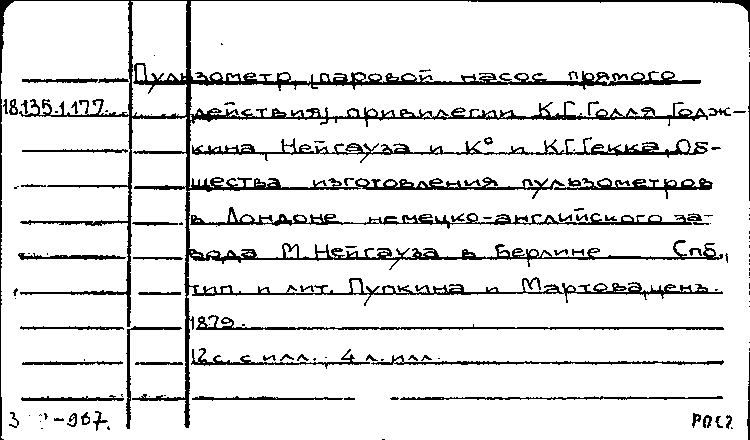 Пульзометр, [паровой насос прямого
18.135.1.177. действия], привилегии К.Г.Голля, Годж-
кина, Нейгауза и К° и К.Г.Гекка, Об-
щества изготовления пульзометров
в Лондоне немецко-английского за-
вода М.Нейгауза в Берлине Спб.,
тип. и лит. Пупкина и Мартова, ценз.
1879.
12 с. с илл.; 4 л. илл.
-967.